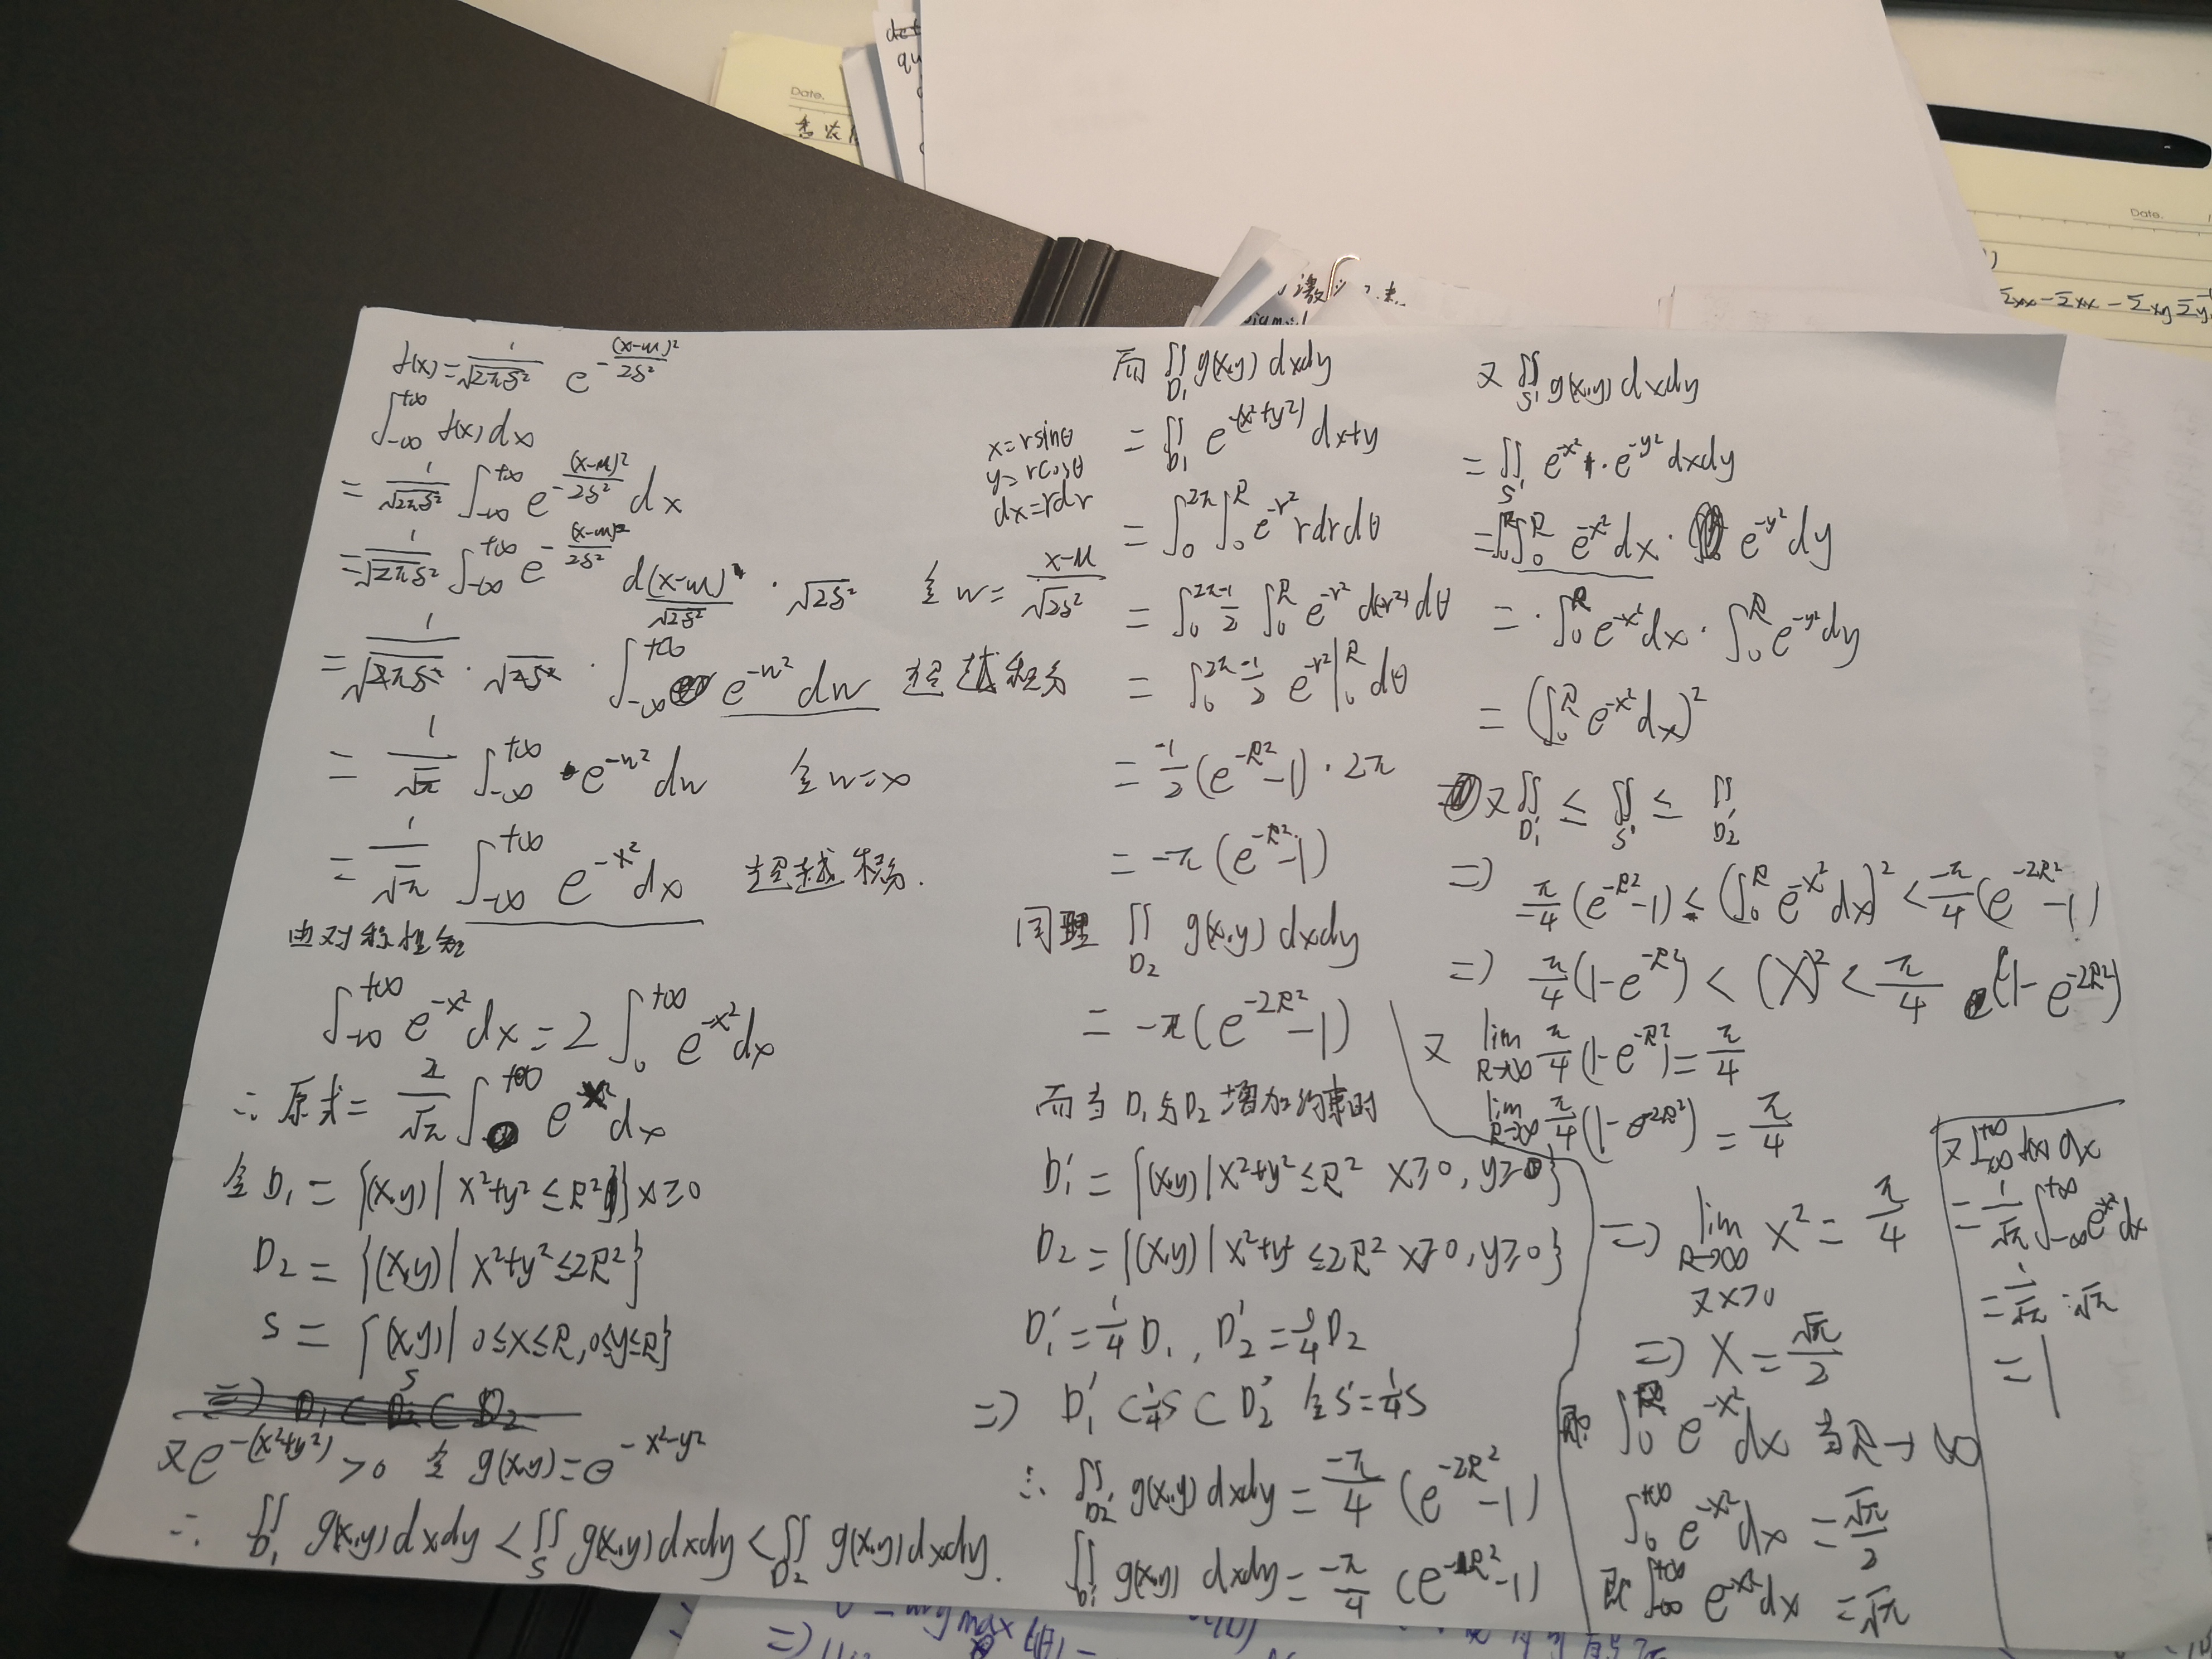 Date.
qu
Date.
Σxx-Σxx-ΣxyΣy
f(x)=1/√(2πδ²) e^(-(x-μ)²/2δ²)
∫_{-∞}^{+∞} f(x)dx
=1/√(2πδ²) ∫_{-∞}^{+∞} e^(-(x-μ)²/2δ²) dx
=1/√(2πδ²) ∫_{-∞}^{+∞} e^(-(x-μ)²/2δ²) d(x-μ)/√(2δ²) · √(2δ²) 令 w=(x-μ)/√(2δ²)
=1/√(2πδ²) · √(2δ²) · ∫_{-∞}^{+∞} e^(-w²) dw 超越积分
=1/√π ∫_{-∞}^{+∞} e^(-w²) dw 令w=x
=1/√π ∫_{-∞}^{+∞} e^(-x²) dx 超越积分.
由对称性知
∫_{-∞}^{+∞} e^(-x²) dx = 2 ∫_0^{+∞} e^(-x²) dx
∴ 原式 = 2/√π ∫_0^{+∞} e^(-x²) dx
令 D₁ = {(x,y) | x²+y² ≤ R²} x≥0
D₂ = {(x,y) | x²+y² ≤ 2R²}
S = {(x,y) | 0≤x≤R, 0≤y≤R}
⇒ D₁ ⊂ S ⊂ D₂
又 e^(-(x²+y²)) >0 令 g(x,y)=e^(-x²-y²)
∴ ∬_{D₁} g(x,y)dxdy < ∬_S g(x,y)dxdy < ∬_{D₂} g(x,y)dxdy.
而 ∬_{D₁} g(x,y) dxdy
= ∬_{D₁} e^(-(x²+y²)) dx+y
x=rsinθ
y=rcosθ
dx=rdr
= ∫_0^{2π} ∫_0^R e^(-r²) rdrdθ
= ∫_0^{2π} -1/2 ∫_0^R e^(-r²) d(-r²) dθ
= ∫_0^{2π} -1/2 e^(-r²)|_0^R dθ
= -1/2 (e^(-R²)-1) · 2π
= -π (e^(-R²)-1)
同理 ∬_{D₂} g(x,y) dxdy
= -π (e^(-2R²)-1)
而当 D₁与D₂ 增加约束时
D₁' = {(x,y) | x²+y² ≤ R² x≥0, y≥0}
D₂ = {(x,y) | x²+y² ≤ 2R² x≥0, y≥0}
D₁' = 1/4 D₁, D₂' = 1/4 D₂
⇒ D₁' ⊂ 1/4 S ⊂ D₂' 令S'=1/4 S
∴ ∬_{D₂'} g(x,y) dxdy = -π/4 (e^(-2R²)-1)
∬_{D₁'} g(x,y) dxdy = -π/4 (e^(-R²)-1)
又 ∬_{S'} g(x,y) dxdy
= ∬_{S'} e^(-x²) · e^(-y²) dxdy
= ∫_0^R ∫_0^R e^(-x²) dx · e^(-y²) dy
= · ∫_0^R e^(-x²) dx · ∫_0^R e^(-y²) dy
= (∫_0^R e^(-x²) dx)²
又 ∬_{D₁'} ≤ ∬_{S'} ≤ ∬_{D₂'}
⇒ -π/4 (e^(-R²)-1) ≤ (∫_0^R e^(-x²) dx)² < -π/4 (e^(-2R²)-1)
⇒ π/4 (1-e^(-R²)) < (X)² < π/4 (1-e^(-2R²))
又 lim_{R→∞} π/4 (1-e^(-R²)) = π/4
lim_{R→∞} π/4 (1-e^(-2R²)) = π/4
⇒ lim_{R→∞} X² = π/4
又x>0
⇒ X = √π/2
即 ∫_0^R e^(-x²) dx 当R→∞
∫_0^{+∞} e^(-x²) dx = √π/2
即 ∫_{-∞}^{+∞} e^(-x²) dx = √π
又 ∫_{-∞}^{+∞} f(x) dx
= 1/√π ∫_{-∞}^{+∞} e^(-x²) dx
= 1/√π · √π
= 1